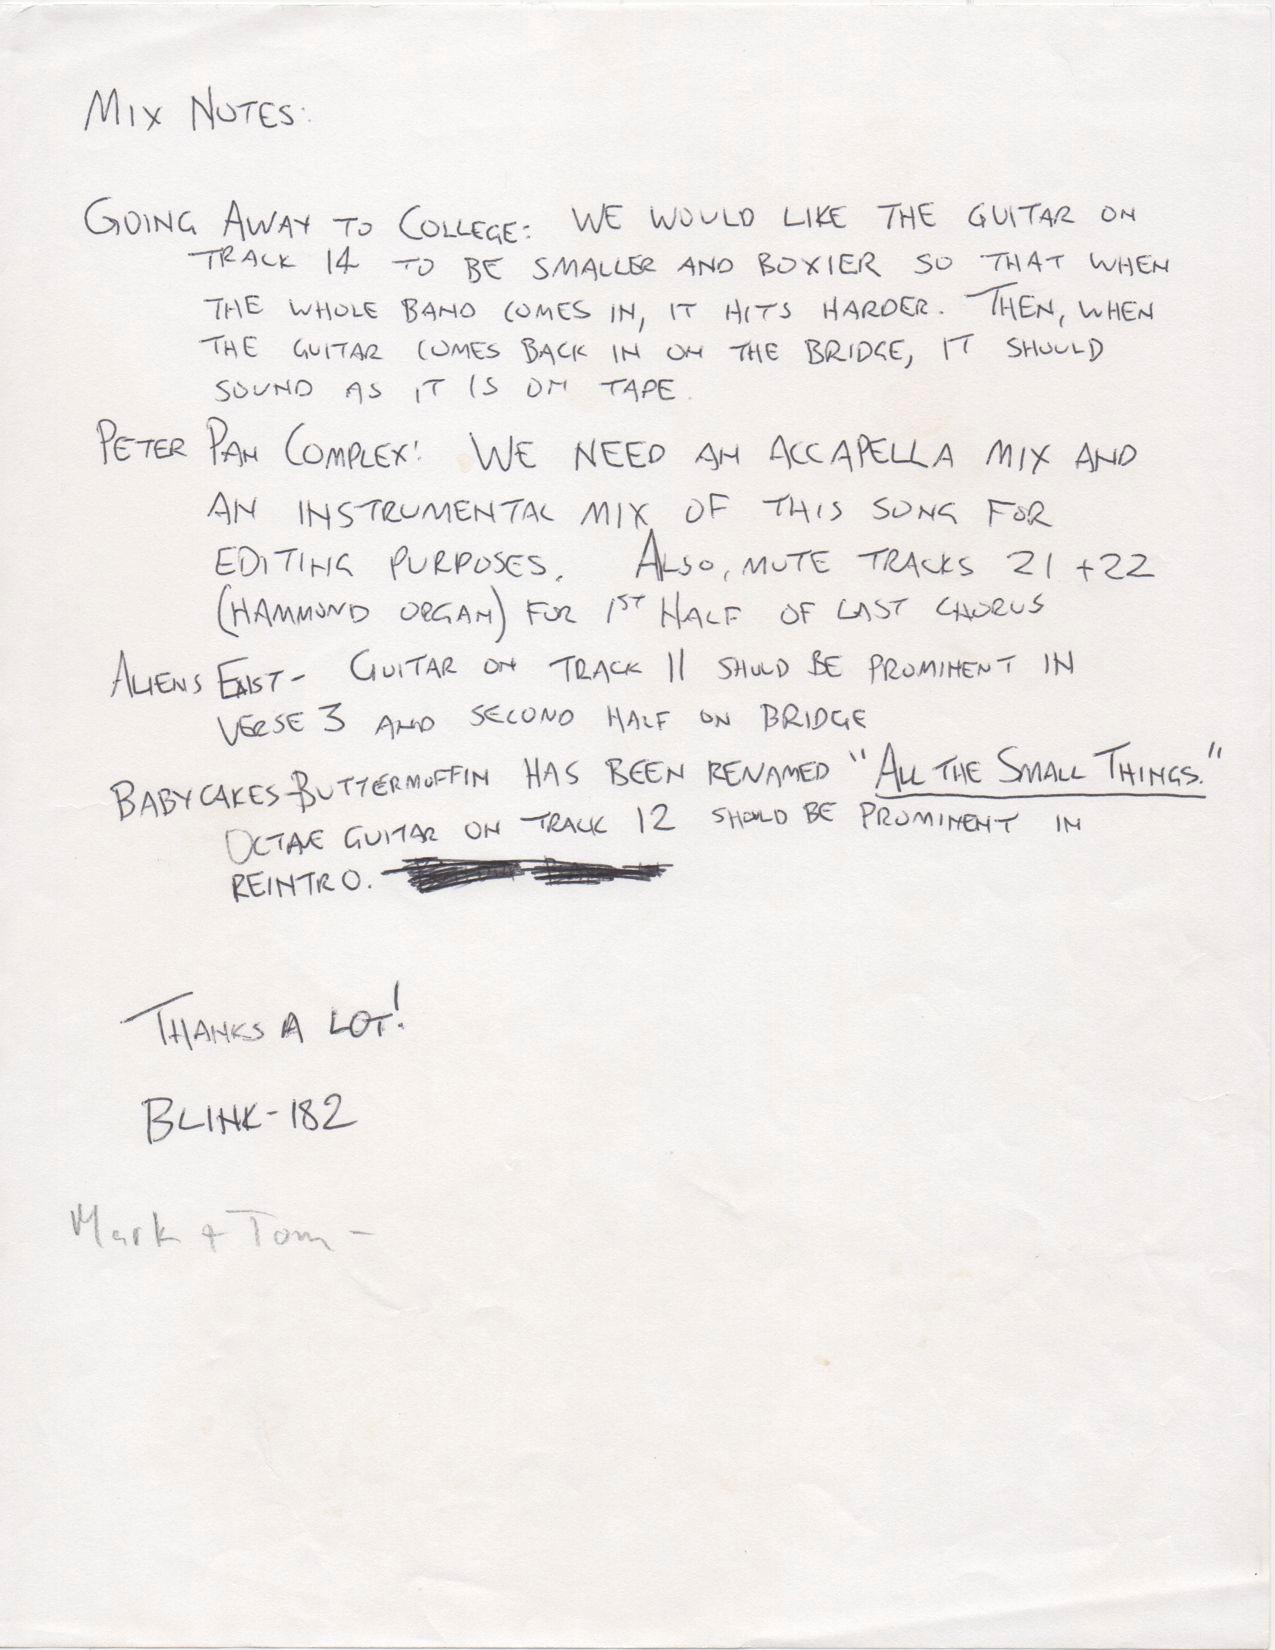 MIX NOTES:
GOING AWAY TO COLLEGE: WE WOULD LIKE THE GUITAR ON
TRACK 14 TO BE SMALLER AND BOXIER SO THAT WHEN
THE WHOLE BAND COMES IN, IT HITS HARDER. THEN, WHEN
THE GUITAR COMES BACK IN ON THE BRIDGE, IT SHOULD
SOUND AS IT IS ON TAPE.
PETER PAN COMPLEX: WE NEED AN ACCAPELLA MIX AND
AN INSTRUMENTAL MIX OF THIS SONG FOR
EDITING PURPOSES. ALSO, MUTE TRACKS 21 + 22
(HAMMOND ORGAN) FOR 1ST HALF OF LAST CHORUS
ALIENS EXIST - GUITAR ON TRACK 11 SHOULD BE PROMINENT IN
VERSE 3 AND SECOND HALF ON BRIDGE
BABYCAKES-BUTTERMUFFIN HAS BEEN RENAMED "ALL THE SMALL THINGS."
OCTAVE GUITAR ON TRACK 12 SHOULD BE PROMINENT IN
REINTRO.
THANKS A LOT!
BLINK-182
Mark + Tom -